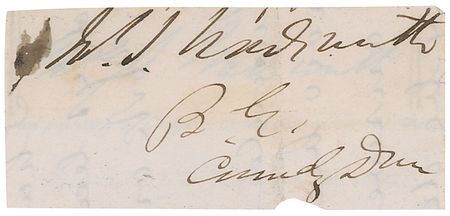 S. Wadsworth
B. G.
Comdg Div